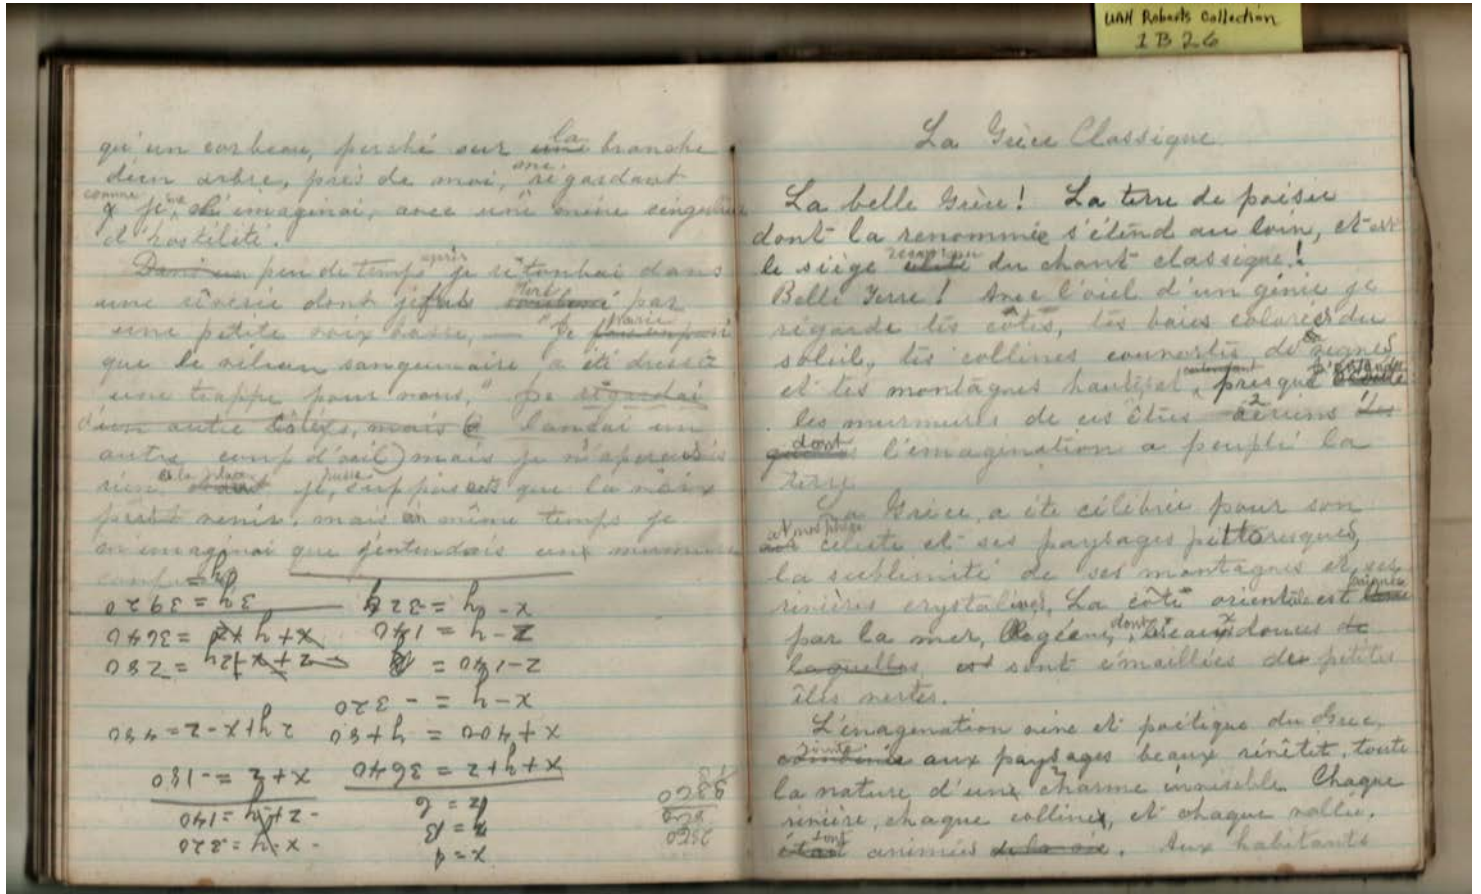 UAH Roberts Collection
1 B 26
qu'un corbeau, perché sur ~~une~~ la branche
d'un arbre, près de moi, me regardant
comme je m'imaginai, avec une mine singulière
d'hostilité.
~~Dans un~~ peu de temps après je retombai dans
une rêverie dont je fus par
une petite voix basse, — "Je
que le vilain sanguinaire, a été dressez
une trappe pour nous," Je regardai
~~d'un autre côtéx, mais~~ lançai un
autre coup d'œil) mais je n'apercevais
rien je supposais que la voix
venir, mais en même temps je
m'imaginai que j'entendais un murmure
3y = 3920
x - y = -320
x + y + z = 3640
z - y = 140
z - 140 = y
x - y = - 320
2y + x - z = 480
x + 400 = y + 80
x + z = - 180
x + y + z = 3640
- z + y = 140
- x - y = -320
x = 9
La Grèce Classique.
La belle Grèce! La terre de poésie
dont la renommée s'étend au loin, et est
le siège du chant classique!
Belle Terre! Avec l'œil d'un génie je
régarde tes côtes, tes baies colorées du
soleil, tes collines couvertes de vignes
et tes montagnes hautes, presque
les murmures de ces êtres aériens ~~des~~
dont l'imagination a peuplé la
terre
La Grèce, a été célébrée pour son
atmosphère céleste et ses paysages pittoresques,
la sublimité de ses montagnes et ses
rivières crystalines, La côte orientale est baignée
par la mer, Aegéene, dont les eaux douces ~~de~~
~~laquelles, est~~ sont émaillées des petites
îles vertes.
L'imagenation vive et poétique du Grec,
jointe aux paysages beaux rêvêtit toute
la nature d'une charme invisible. Chaque
rivière, chaque colline, et chaque vallée,
~~étant~~ sont animées ~~de la vie~~. Aux habitants